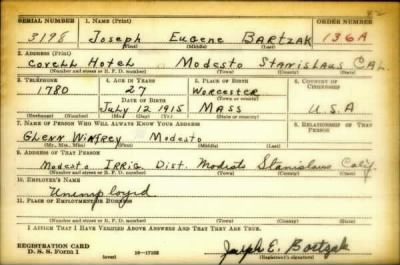 SERIAL NUMBER 1. NAME (Print) ORDER NUMBER
3198 Joseph Eugene Bartzak 136A
(First) (Middle) (Last)
2. ADDRESS (Print)
Covell Hotel Modesto Stanislaus CAL
(Number and street or R. F. D. number) (Town) (County) (State)
3. TELEPHONE 4. AGE IN YEARS 5. PLACE OF BIRTH 6. COUNTRY OF CITIZENSHIP
1780 27 Worcester
DATE OF BIRTH (Town or county)
July 12 1915 Mass U.S.A
(Exchange) (No.) (Mo.) (Day) (Yr.) (State or country)
7. NAME OF PERSON WHO WILL ALWAYS KNOW YOUR ADDRESS 8. RELATIONSHIP OF THAT PERSON
Glenn Modesto
(Mr., Mrs., Miss) (First) (Middle) (Last)
9. ADDRESS OF THAT PERSON
Modesto Irrig Dist. Modesto Stanislaus Calif.
(Number and street or R. F. D. number) (Town) (County) (State)
10. EMPLOYER'S NAME
Unemployed
11. PLACE OF EMPLOYMENT OR BUSINESS
(Number and street or R. F. D. number) (Town) (County) (State)
I AFFIRM THAT I HAVE VERIFIED ABOVE ANSWERS AND THAT THEY ARE TRUE.
REGISTRATION CARD
D. S. S. Form 1 (over) 16—17105 Joseph E. Bartzak
(Registrant's signature)